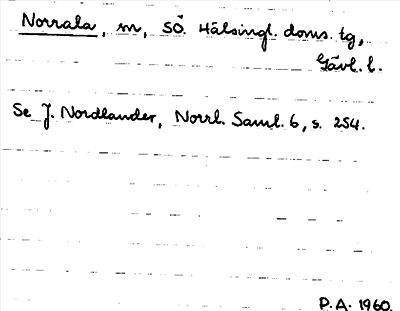 Norrala, m, SÖ. Hälsingl. doms. tg,
Gävl. l.
Se J. Nordlander, Norrl. Saml. 6, s. 254.
P.A. 1960.